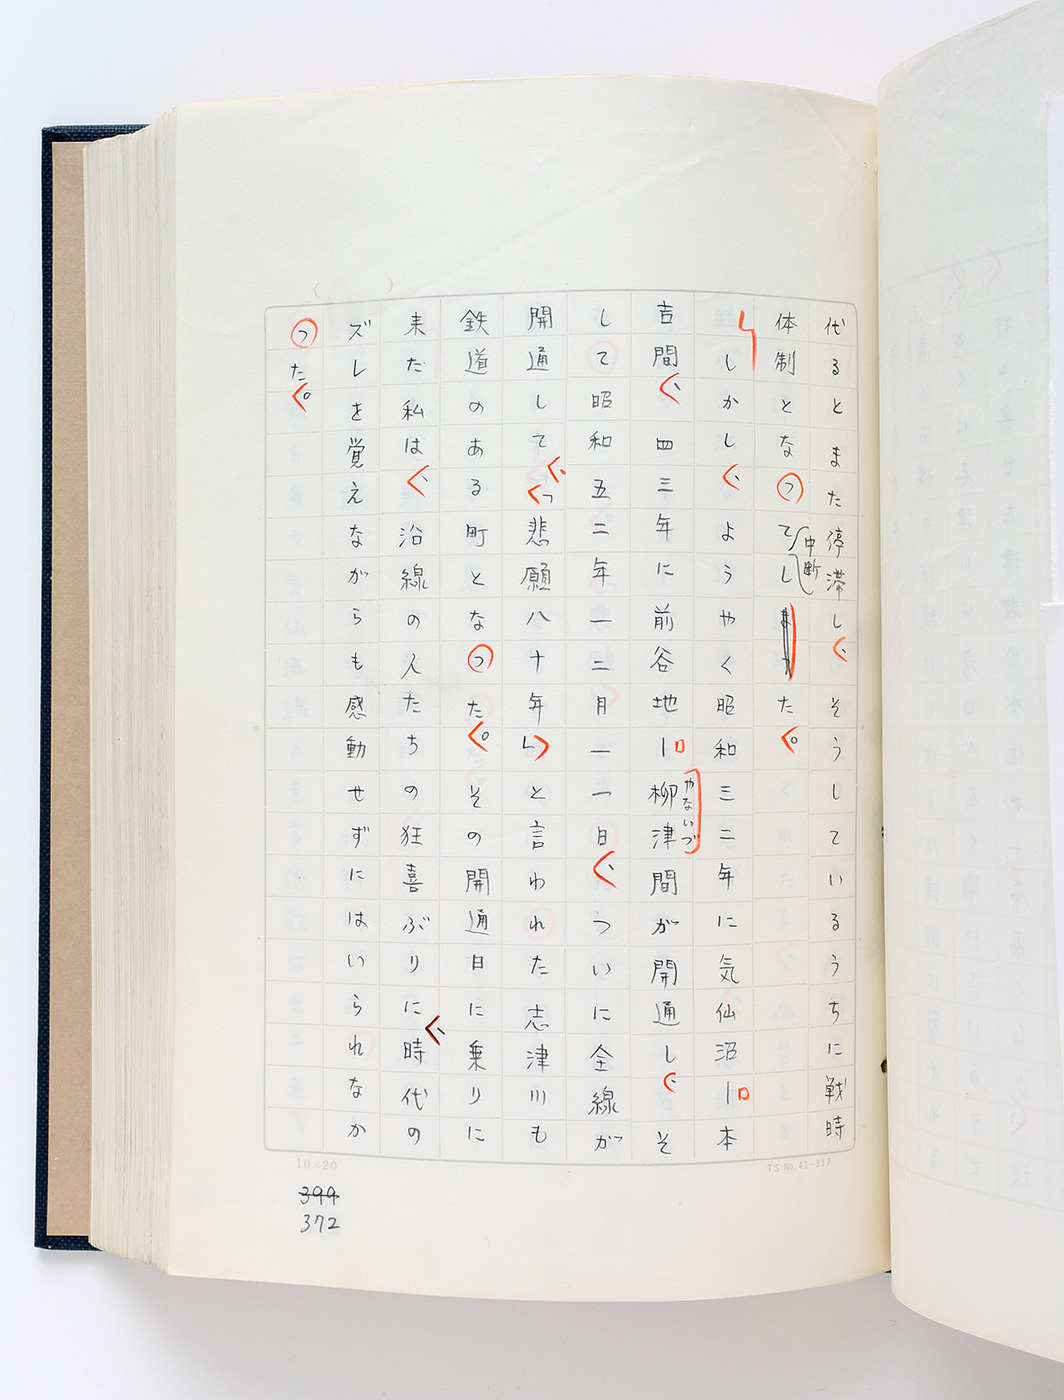 代るとまた停滞し、そうしているうちに戦時
体制となって中断した。
しかし、ようやく昭和三二年に気仙沼ー本
吉間、四三年に前谷地ー柳津間が開通し、そ
やないづ
して昭和五二年一二月一一日、ついに全線が
開通して、「悲願八十年」と言われた志津川も
鉄道のある町となった。その開通日に乗りに
来た私は、沿線の人たちの狂喜ぶりに、時代の
ズレを覚えながらも感動せずにはいられなか
った。
10×20
TS No. 41-317
399
372